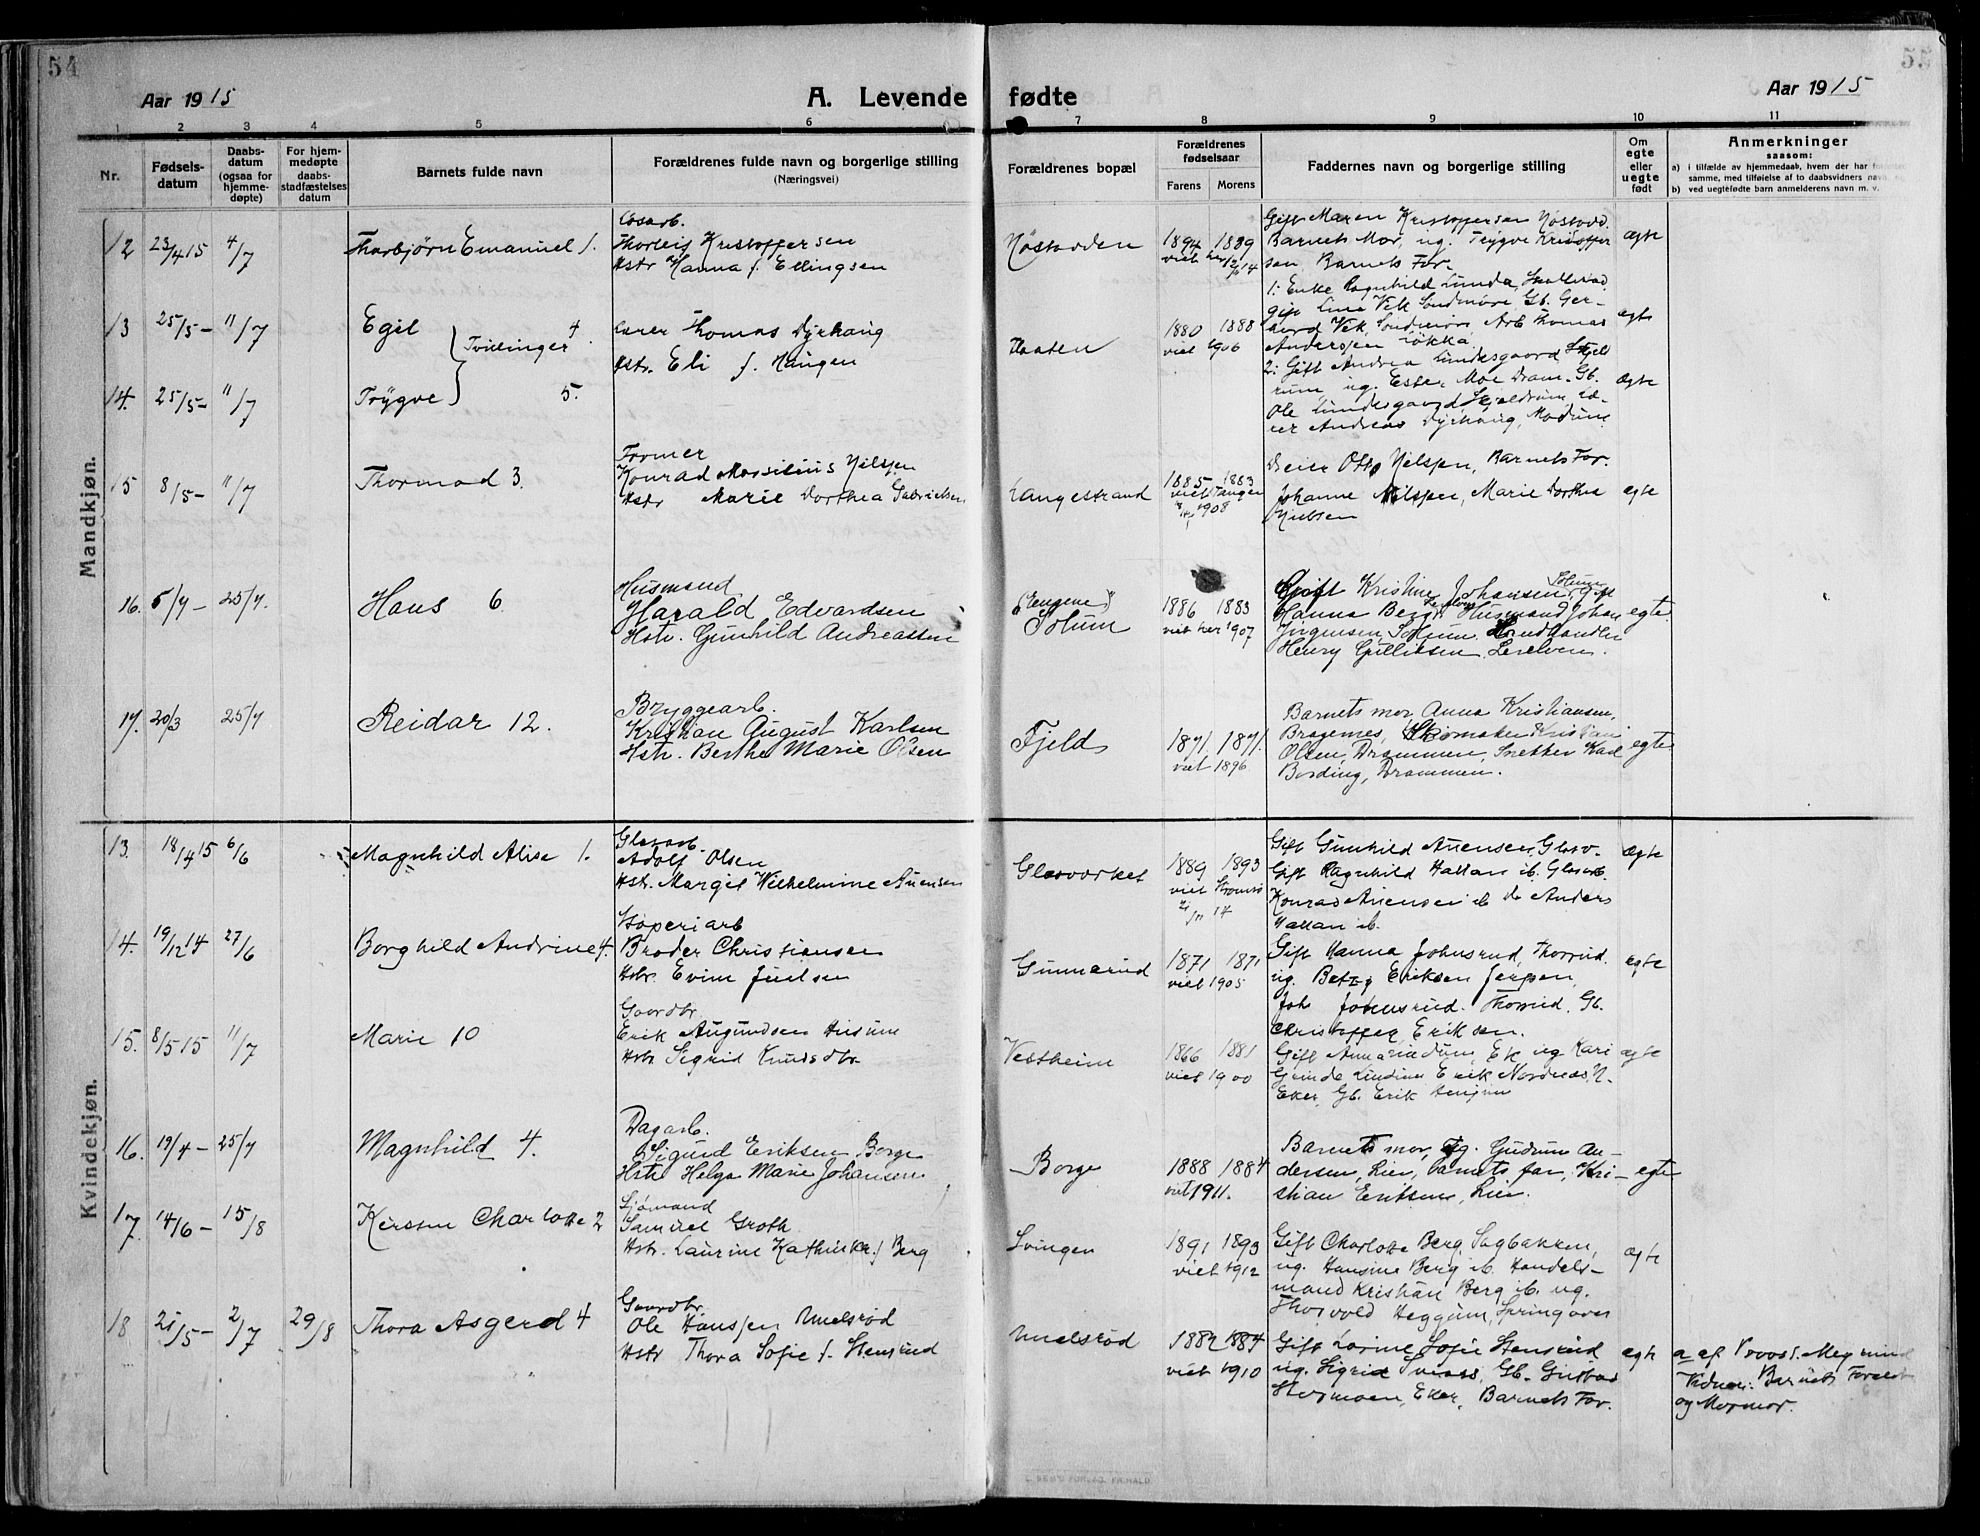 54
55
Aar 1915
A. Levende fødte
Aar 1915
1 2 3 4 5 6 7 8 9 10 11
Nr.
Fødsels-
datum
Daabs-
datum
(ogsaa for
hjemme-
døpte)
For hjem-
medøpte
daabs-
stadfæstelses
datum
Barnets fulde navn
Forældrenes fulde navn og borgerlige stilling
(Næringsvei)
Forældrenes bopæl
Forældrenes
fødselsaar
Farens Morens
Faddernes navn og borgerlige stilling
Om
egte
eller
uegte
født
Anmerkninger
saasom:
a) i tilfælde av hjemmedaab, hvem der har
samme, med tilføielse af to daabsvidners navn,
b) ved uegtefødte barn anmelderens navn m. v.
Mandkjøn.
12 23/4 15 4/7 Thorbjørn Emanuel 1.
Thorleif Kristoffersen
Hstr Hanna f. Ellingsen
Nøstodden
1894 1889
viet her 14
Gift Maren Kristoffersen Nøstodd.
Barnets Mor, ug. Trygve Kristoffer
sen, Barnets Far
ægte
13 25/5 – 11/7 Egil 4
Tvillinger
Thomas Dyrhaug
Hstr. Eli f. Haugen
1880 1888
viet 1906
1: Enke Ragnhild Lunda
gift Lina Vik Søndmøre Gb. Ger-
hard Vik, Søndmøre, Arb Thomas
Anderssen Løkka
ægte
14. 25/5 – 11/7 Trygve 5.
2: Gift Andrea Lundesgaard
ug. Ester Moe Dram. Gb.
Ole Lundesgaard, Skjeldrum, Læ-
rer Andreas Dyrhaug, Modum
ægte
15 8/5 – 11/7 Thormod 3
Former
Konrad Nilssen
Hstr Marie Dorthea Gabrielsen
Langestrand
1885 1883
viet Tangen
1908
Otto Nilssen, Barnets Far.
Johanne Nilssen, Marie Dorthea
Nielsen
ægte
16. 5/7 – 25/7. Hans 6
Husmand
Harald Edvardsen
Hstr. Gunhild Andreassen
(Engene)
Solum
1886 1883
viet her 1907
Gift Kristine Johansen, Solum, Gift
Hanna Berg, Husmand Johan
Jørgensen, Solum, Handler
Henry Gulliksen, Lerelven.
egte.
17. 20/3 25/7 Reidar 12.
Bryggearb.
Kristian August Karlsen
Hstr. Berthe Marie Olsen
Fjeld
1871. 1871.
viet 1896
Barnets mor, Anna Kristiansen,
Bragernes, Skomaker Kristian
Olsen, Drammen, Snekker Karl
Bording, Drammen.
egte
Kvindekjøn.
13. 18/4 15 6/6 Magnhild Alise 1.
Glasarb.
Adolf Olsen
Hstr. Margit Wilhelmine Auensen
Glasværket
1889 1893
viet Strømsø
Gift Gunhild Auensen, Glasv.
Gift Ragnhild Hallan ib. Glasarb.
Konrad Auensen ib do Anders
Hallan ib.
ægte
14. 19/12 14 27/6 Borghild Andrine 4.
Støperiarb
Broder Christiansen
Hstr. Evine Juelsen
Gunnerud
1871 1871
viet 1905
Gift Hanna Johnsrud, Thorrud.
ug. Betzy Eriksen Jerpen,
Joh Johnsrud. Thorrud. Gb.
Christoffer Eriksen.
egte
15. 8/5 15 11/7 Marie 10
Gaardbr.
Erik Augundsen
Hstr Sigrid Knudsdtr.
Vestheim
1866 1881
viet 1900
Eker, Gb. Erik
ægte
16. 19/4 – 25/7 Magnhild 4.
Dagarb.
Sigurd Eriksen, Borge
Hstr Helga Marie Johansen
Borge
1888 1884
viet 1911.
Barnets mor, Ug. Gudrun An-
dersen, Lier, barnets far, Kri-
stian Eriksen, Lier.
egte
17. 14/6 – 15/8 Kersten Charlotte 2
Sjømand
Samuel Groth
Hstr. Laurine Kathinka f Berg
Svingen
1891 1893
viet 1912
Gift Charlotte Berg, Sagbakken,
ug. Hansine Berg ib. Handels-
mand Kristian Berg ib. ug.
Thorvold Heggum, Springover
ægte
18 21/5 – 2/7 29/8 Thora Asgerd 4
Gaardbr.
Ole Hanssen Unelsrød
Hstr Thora Sofie f. Stensrud
Unelsrød
1882 1884
viet 1910
Gift Lorine Sofie Stensrud
ug. Sigrid Gb. Gustav
Stegmoen, Eker, Barnets Far.
egte
a af
Vidner: Barnets Foreldr
og Mormor.